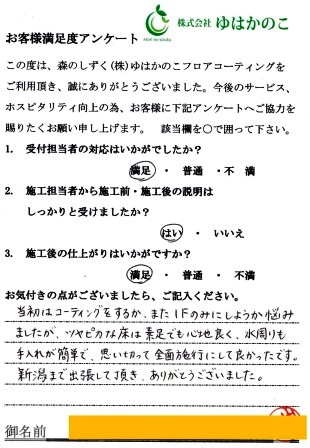 株式会社 ゆはかのこ
お客様満足度アンケート
この度は、森のしずく(株)ゆはかのこフロアコーティングを
ご利用頂き、誠にありがとうございました。今後のサービス、
ホスピタリティ向上の為、お客様に下記アンケートへご協力を
賜りたくお願い申し上げます。 該当欄を○で囲って下さい。
1. 受付担当者の対応はいかがでしたか?
満足 ・ 普通 ・不 満
2. 施工担当者から施工前・施工後の説明は
しっかりと受けましたか?
はい ・ いいえ
3. 施工後の仕上がりはいかがですか?
満足 ・ 普通 ・ 不満
お気付きの点がございましたら、ご記入ください。
当初はコーティングをするか、また1Fのみにしようか悩み
ましたが、ツヤピカな床は素足でも心地良く、水周りも
手入れが簡単で、思い切って全面施行にして良かったです。
新潟まで出張して頂き、ありがとうございました。
御名前